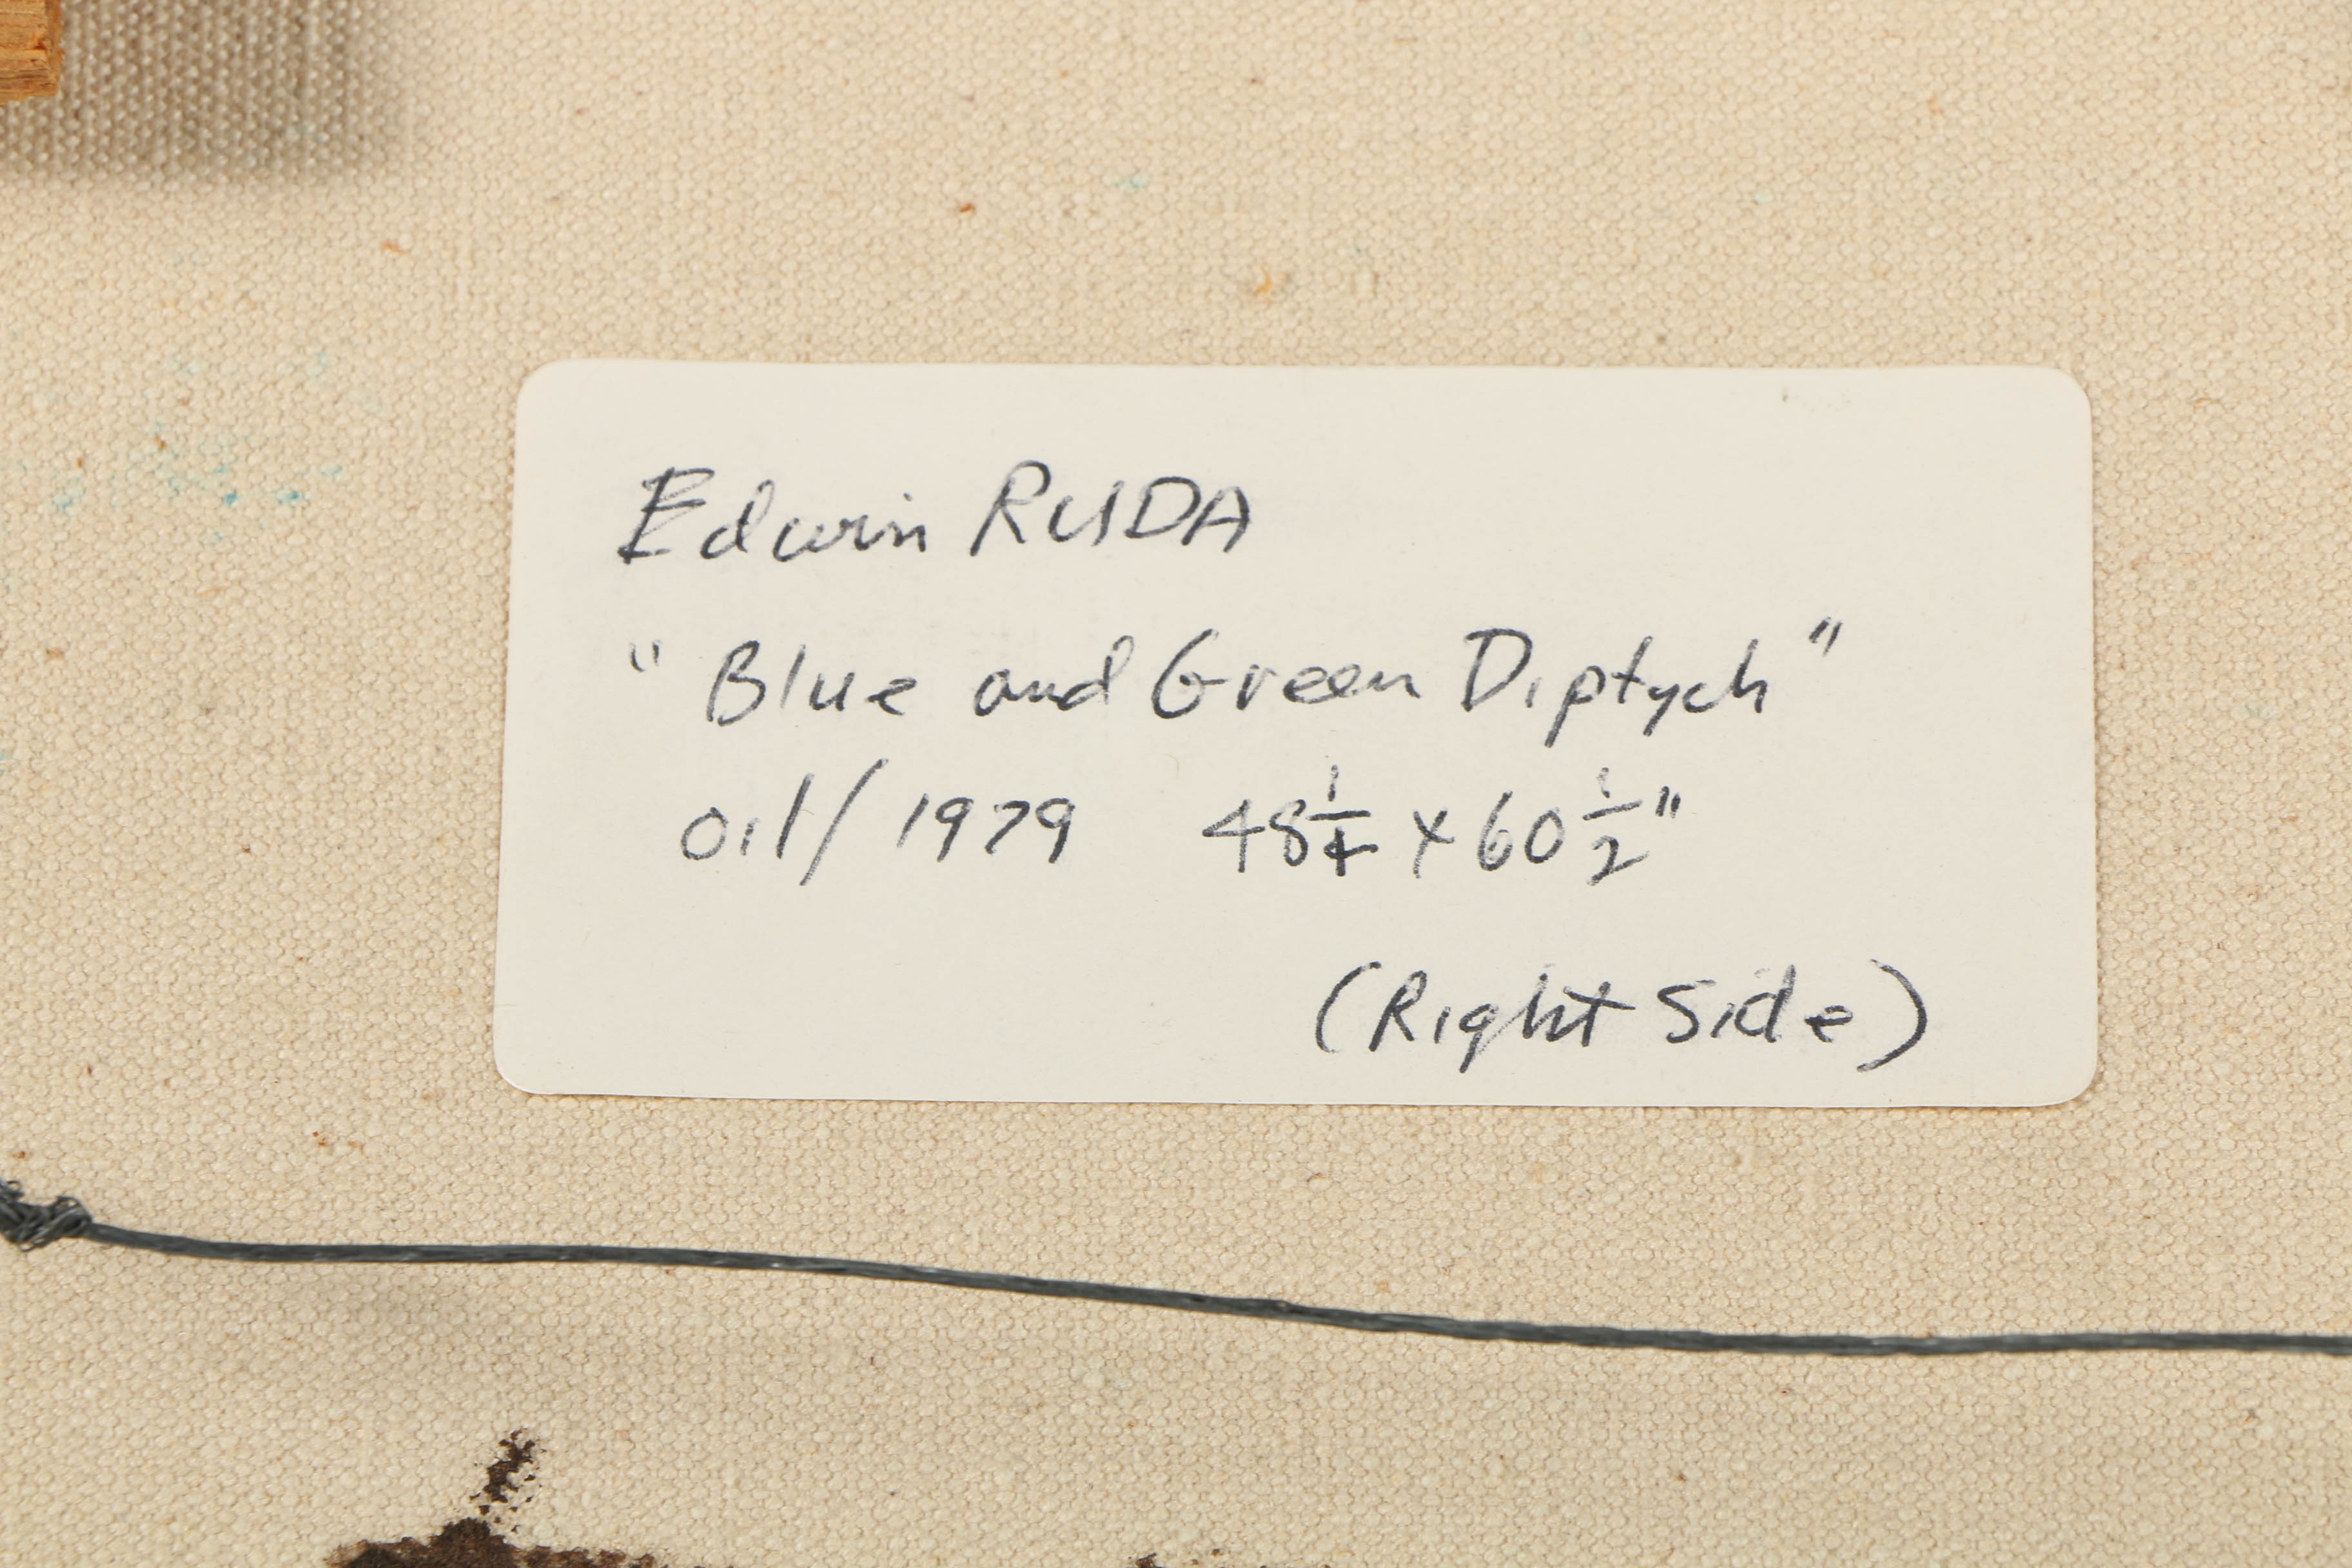 Edwin RUDA
"Blue and Green Diptych"
oil/1979 48 1/4 x 60 1/2"
(Right Side)